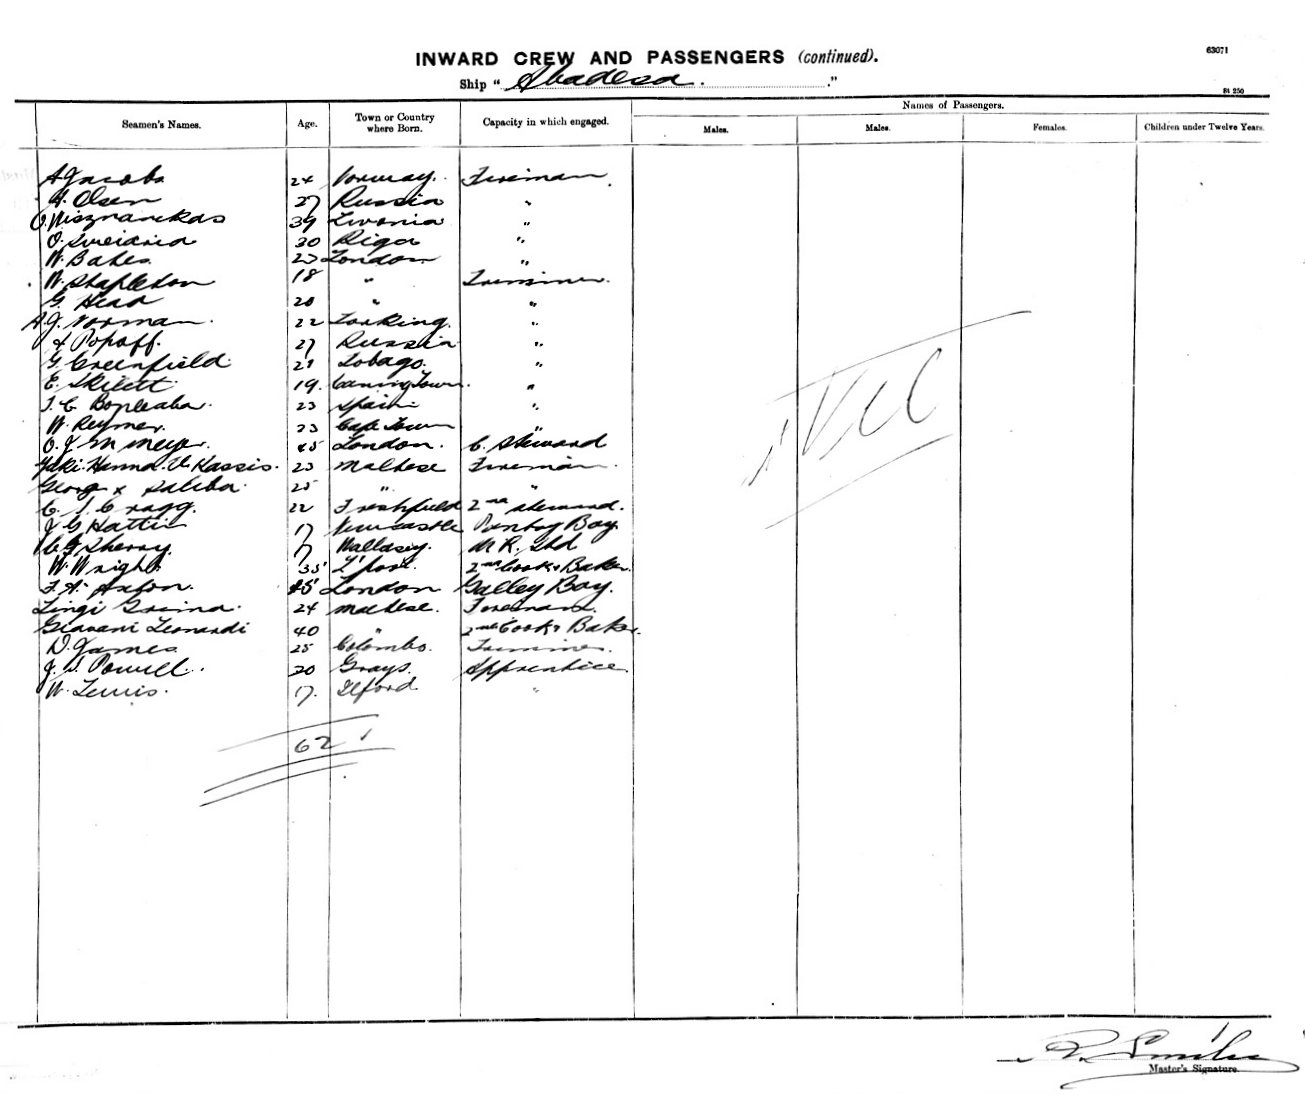 63071
INWARD CREW AND PASSENGERS (continued).
Ship " Abadesa. "
St 250
Seamen's Names. Age. Town or Country where Born. Capacity in which engaged. Names of Passengers.
Males. Males. Females. Children under Twelve Years.
A Jacobs 24 Norway. Fireman.
A. Olsen 27 Russia "
O. 39 Livonia "
O. 30 Riga "
W. Bates 23 London "
W. Stapleton 18 " Trimmer.
G. Head 20 " "
A. J. Norman. 22 "
Popoff. 27 Russia "
G. Greenfield. 21 Tobago. "
E. Skilett. 19. Caning Town. "
23 Spain "
W. Reymer. 23 Cape Town "
O. J. M Meyer. 45 London. C. Steward
Hanna. Kassis. 23 Maltese Fireman.
George Saliba. 25 " "
C. Cragg. 22 Freshfield 2nd Steward.
J G Hattin 17 Newcastle Pantry Boy.
C G Sherry. 17 Wallasey. M R. Std
W. Wright. 35 L'pool. 2nd Cook & Baker.
F. A. 45 London Galley Boy.
Grima. 24 Maltese. Fireman.
Leonardi 40 " 2nd Cook & Baker.
D. James 25 Colombo. Trimmer.
J. S. Powell. 20 Grays. Apprentice
W. Lewis. 17. Ilford "
62
Nil
Master's Signature.